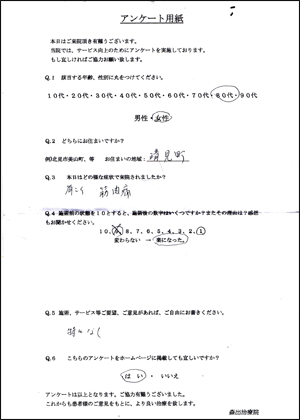 アンケート用紙
本日はご来院頂き有難うございます。
当院では、サービス向上のためにアンケートを実施しております。
もし宜しければご協力お願い致します。
Q.1 該当する年齢、性別に丸をつけてください。
10代・20代・30代・40代・50代・60代・70代・80代・90代
男性・女性
Q.2 どちらにお住まいですか?
例)北見市美山町、等 お住まいの地域: 清見町
Q.3 本日はどの様な症状で来院されましたか?
肩こり 筋肉痛
Q.4 施術前の状態を10とすると、施術後の数字はいくつですか?またその理由は?感想
もお聞かせください。
10、9、8、7、6、5、4、3、2、1
変わらない → 楽になった。
Q.5 施術、サービス等ご要望、ご意見があれば、ご自由にお書きください。
特になし
Q.6 こちらのアンケートをホームページに掲載しても宜しいですか?
はい ・ いいえ
アンケートは以上となります。ご協力有難うございました。
これからも患者様のご意見をもとに、より良い治療を致します。
森出治療院